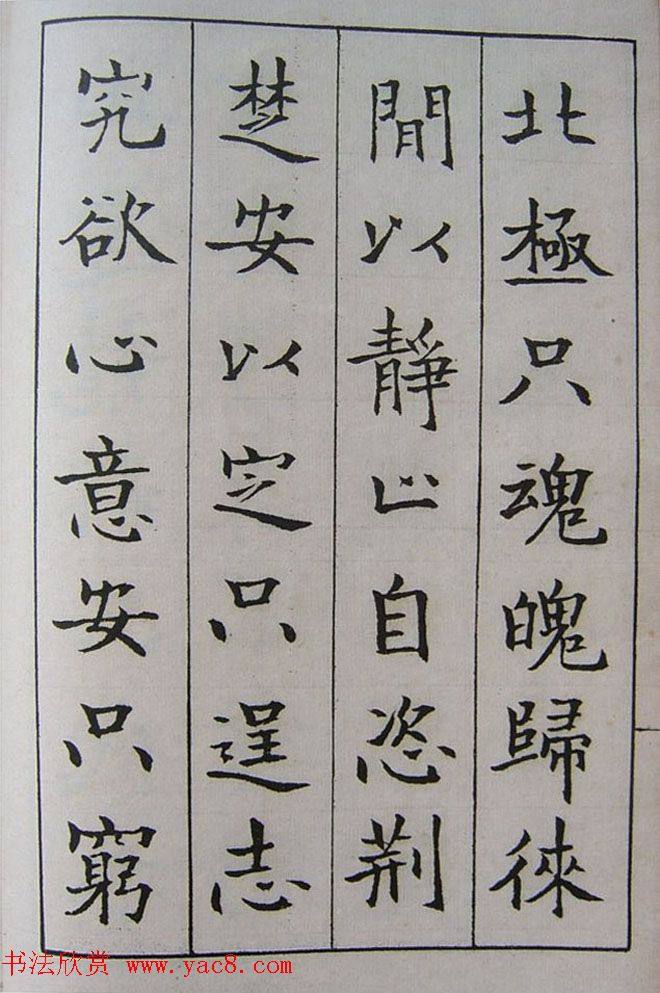 北極只魂魄歸徠
閒以靜㠯自恣荆
楚安以定只逞志
究欲心意安只窮
书法欣赏 www.yac8.com